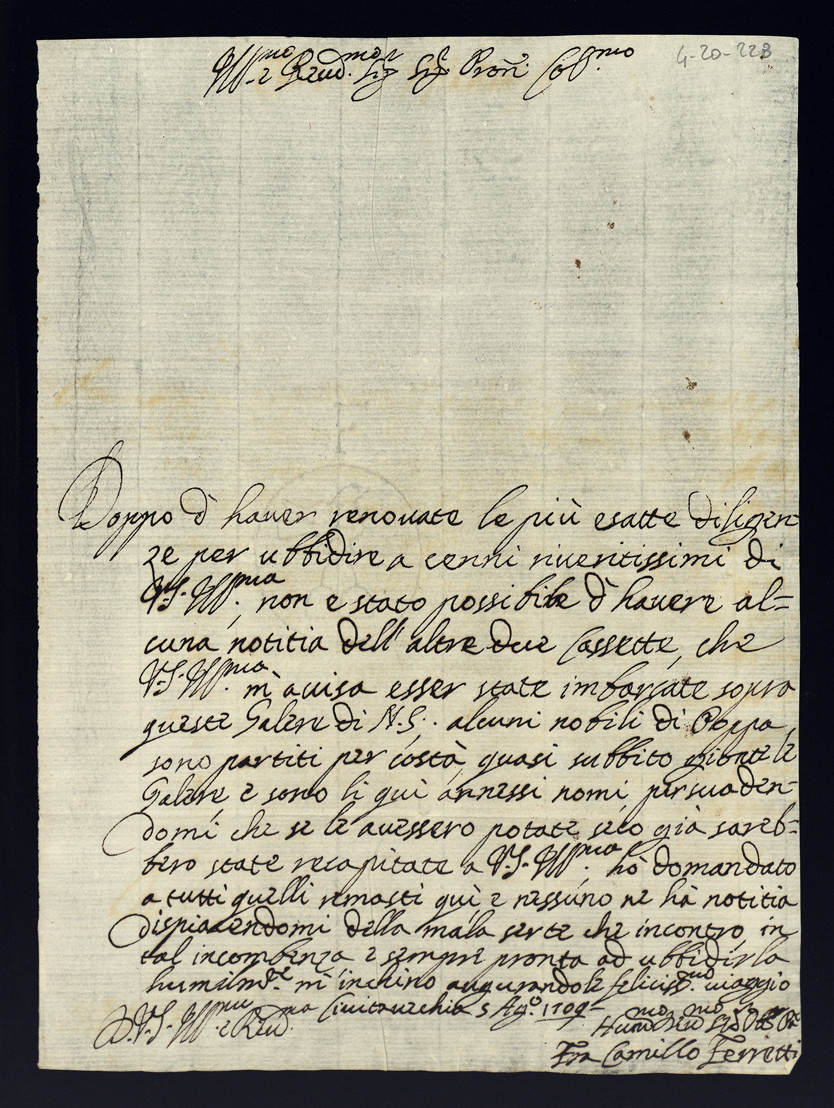 Ill.mo e Reud.mo Sig.r Sig.r Pron Col.mo
4-20-223
Doppo d'hauer renouate le più esatte diligen-
ze per ubbidire a cenni riueritissimi di
V.S. Ill.ma, non e stato possibile d'hauere al=
cuna notitia dell'altre due Cassette, che
V.S. Ill.ma m'auisa esser state imbarcate sopra
queste Galere di N.S.. alcuni nobili di Poppa
sono partiti per costà quasi subbito gionte le
Galere e sono li quì annessi nomi persuaden-
domi che se le auessero potate seco già sareb=
bero state recapitate a V.S. Ill.ma hò domandato
a tutti quelli remasti quì e nessuno ne hà notitia
dispiacendomi della mala sorte che incontro in
tal incombenza e sempre pronto ad ubbidirla
humilm.te m'inchino augurandole feliciss.mo uiaggio
D.V.S. Ill.ma e Reud.ma Ciuitauechia 5 Ag.o 1709
Fra Camillo Ferretti